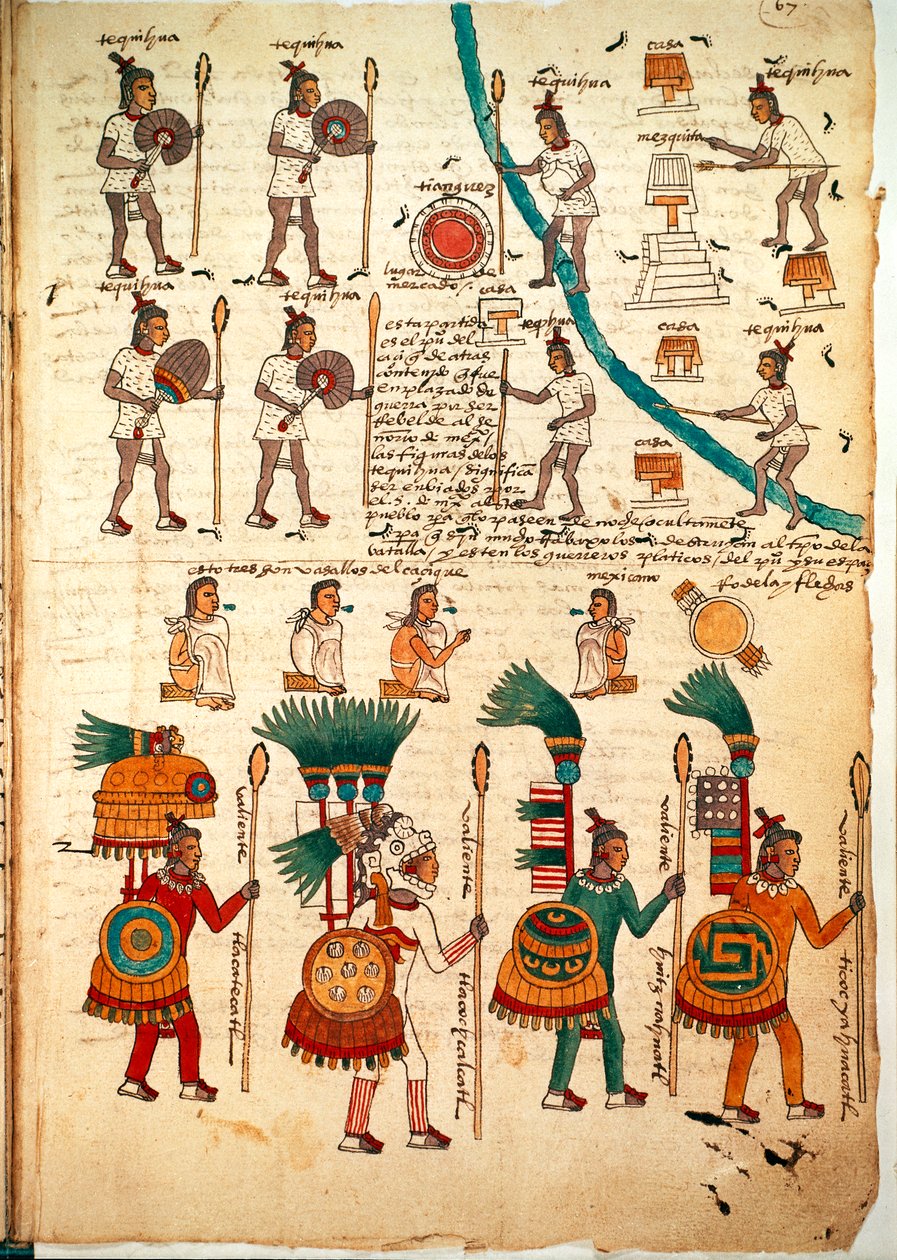 67
tequihua
tequihua
tequihua
casa
tequihua
mezquita
tianguez
lugar de
mercado /.
casa
tequihua
tequihua
teq̃hua
casa
tequihua
casa
esta partida
es el pu° del
caciq̃ de atras
contenido q̃ fue
enplazado de
guerra por ser
Rebelde al se
ñorio de mexº /
las figuras de los
tequihua / significã
ser enbiados por
el s. de mexº al dho
pueblo pa q̃ lo paseen de noche ocultamẽte
pa q̃ syn abaxo los al tpo de la
batalla / y esten los guerreros platicos / del pu° y su
estos tres son vasallos del caçique
mexicano
Rodela y flechas
valiente
tlacatecatl
valiente
tlacochcalcatl
valiente
huitznahuatl
valiente
ticocyahuacatl